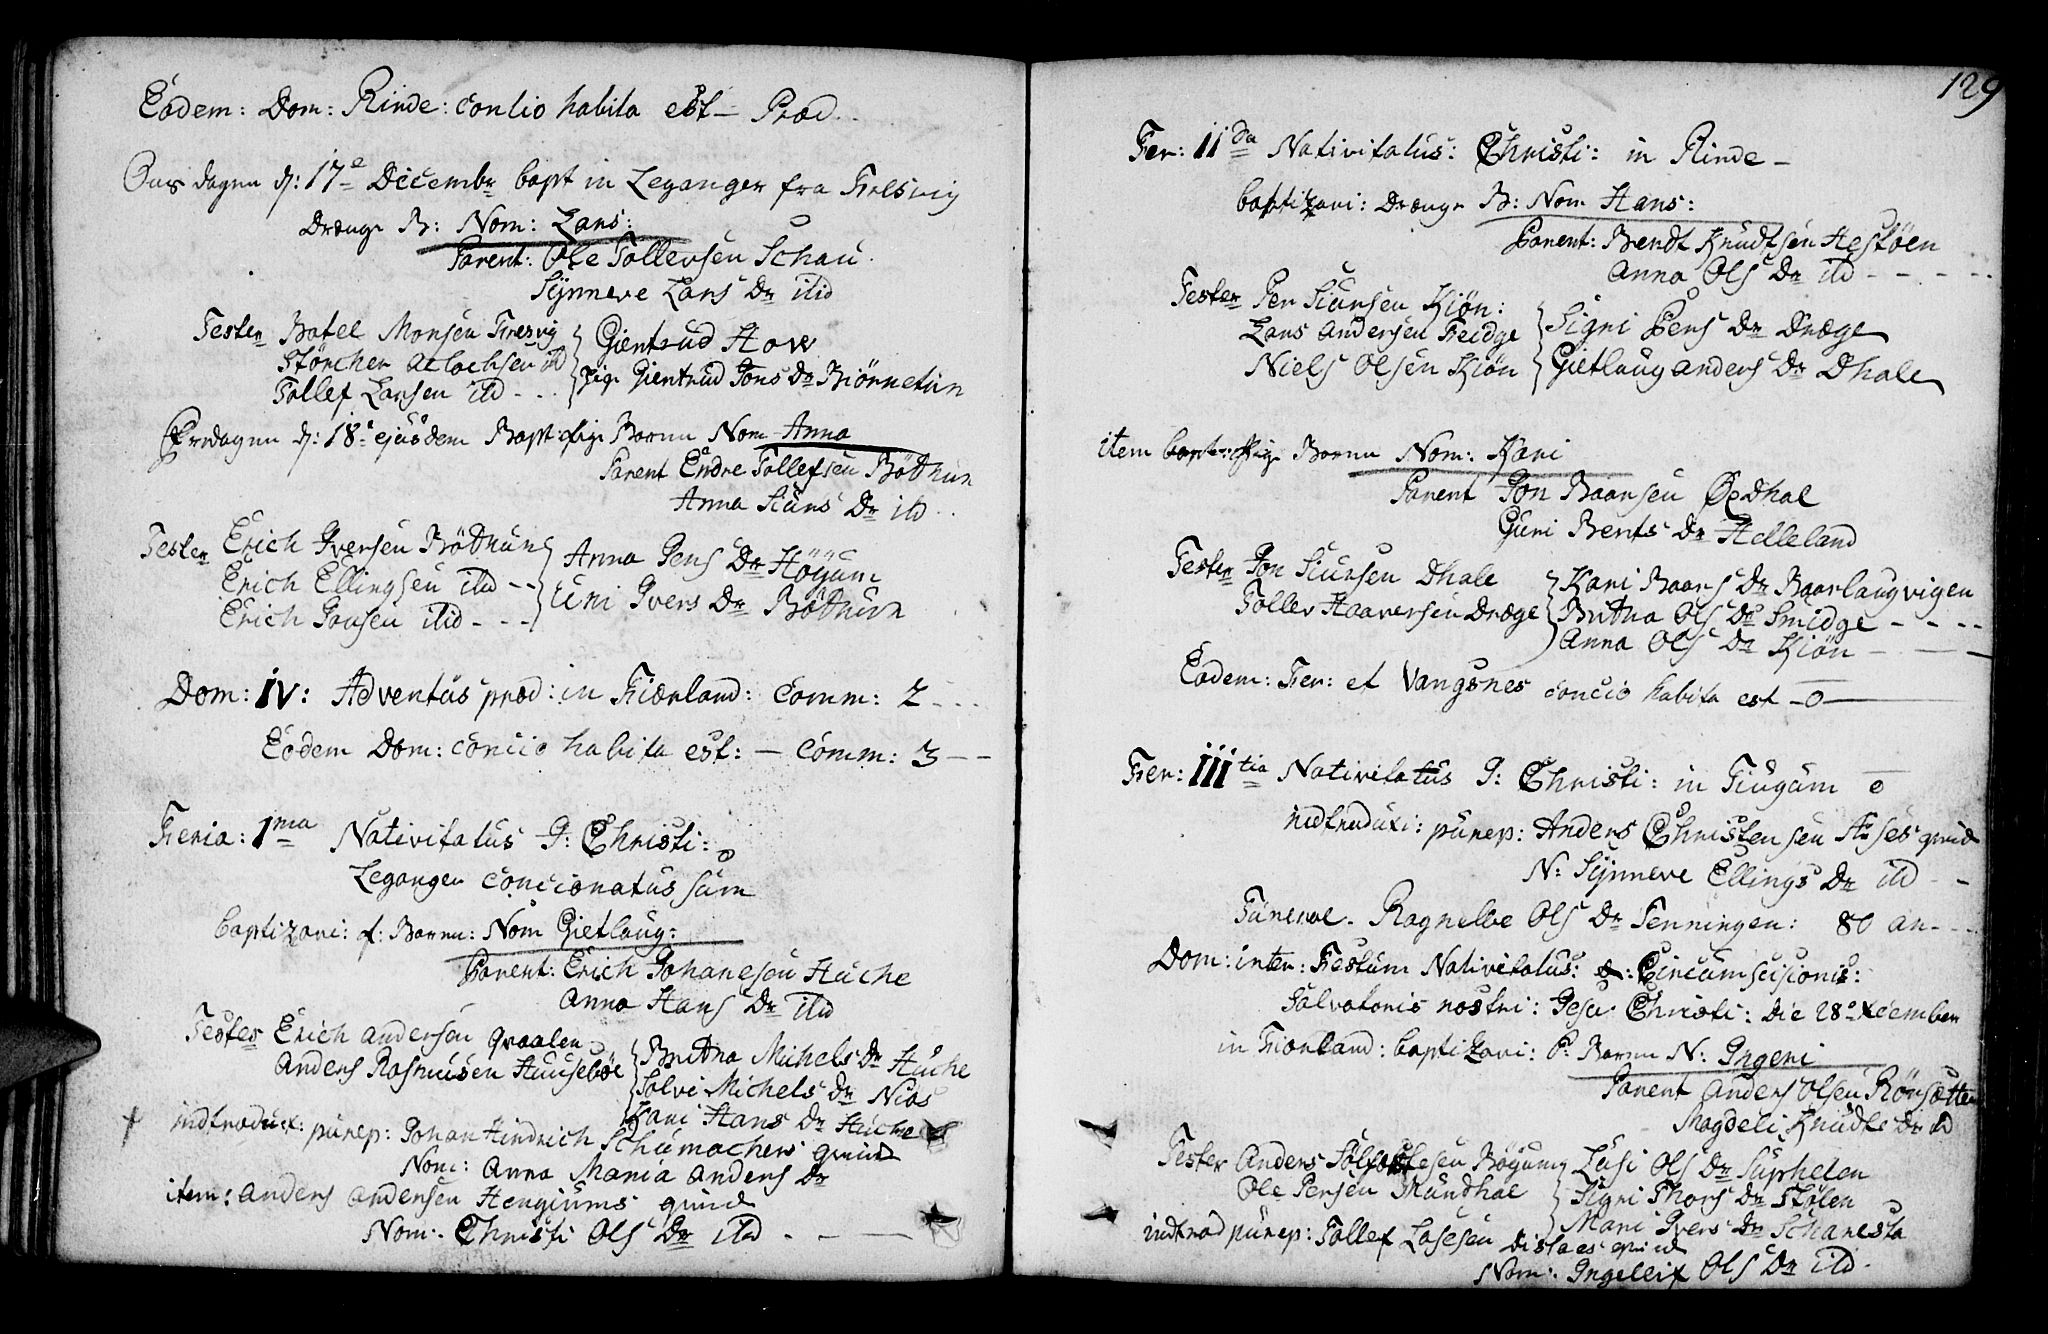 Eodem: Dom: Rinde: contio habita est — Præd..
Ons dagen d: 17e Decembr bapt in Leganger fra Fresvig
Drænge B: Nom: Lars:
Parent: Ole Tollersen Schau.
Synneve Lars Dr itid
Tester Botel Monsen Fresvig
Størcher Atlachsen id
Tollef Larsen itd - . .
Giertrud Hove
pige Giertrud Jons Dr Biørnetun
Tordagen d: 18e ejusdem Bapt: pige Barnn Nom Anna
Parent Endre Tollefsen Bøthun
Anna Siurs Dr itd ..
Tester Erich Iversen Bøthun
Erich Ellingsen itd - -
Erich Jonsen itid - - -
Anna Jens Dr Høyum
Uni Ivers Dr Bøthun
Dom: IV: Adventus præd: in Fiærland: Comm: 2 - . .
Eodem Dom: concio habita est: — Comm: 3 - -
Feria: 1ma Nativitatus J: Christi:
Leganger concionatus sum
baptizavi: p: Barnn: Nom Gietlaug:
Parent: Erich Johanesen Huche
Anna Hans Dr itid
Testes Erich Andersen Graalen
Anders Rasmusen Huusebøe
Britha Michels Dr Huche
Solvi Michels Dr Nios
Kari Hans Dr Huche
indtroduct: puerp: Johan Hindrich Schumachers qvind
Nom: Anna Maria Anders Dr
item: Anders Andersen Hengiums qvind
Nom: Christi Ols Dr itd . - —
129
Fer: IIda Nativitatus: Christi: in Rinde -
baptizavi: Drænge B: Nom Hans:
Parent: Bendt Knudtsen Hestøen
Anna Ols Dr itd - - - - -
Tester Per Siursen Kiøn:
Lars Andersen Feidge
Niels Olsen Kiøn
Signi Pers Dr Dræge
Gietlaug Anders Dr Dhale
item bapt: pige Barnn Nom: Kari
Parent Jon Baarsen Øedhal
Guri Bents Dr Helleland
Tester Jon Siursen Dhale
Tollev Haaversen Dræge
Kari Baars Dr Baarlaugvigen
Britha Ols Dr Smidge - - - -
Anna Ols Dr Kiøn - - -
Eodem: Fer: et Vangsnes concio habita est -0-
Fer: IIItia Nativitatus J: Christi: in Tiugum 0
indtroduxi: puerp: Anders Christensen Ases qvind
N: Synneve Ellings Dr itd - -
Funerae. Ragnelde Ols Dr Tenningen: 80 an- . .
Dom: inter: Festum Nativitatus: &: Circumscisionis:
Salvatoris nostri: Jesu Christi: die 28e Xdember
in Fiorland: baptizavi: P: Barnn N: Ingeri
Parent Anders Olsen Rørsætten
Magdeli Knudts Dr id
Tester Anders Sølfastesen Bøyum
Ole Persen Mundhal
Lusi Ols Dr Suphelen
Signi Thors Dr Stølen
Mari Ivers Dr Scharestø
indtrod puerp: Tollef Lasesen Distaes qvind
Nom: Ingelleif Ols Dr itd.